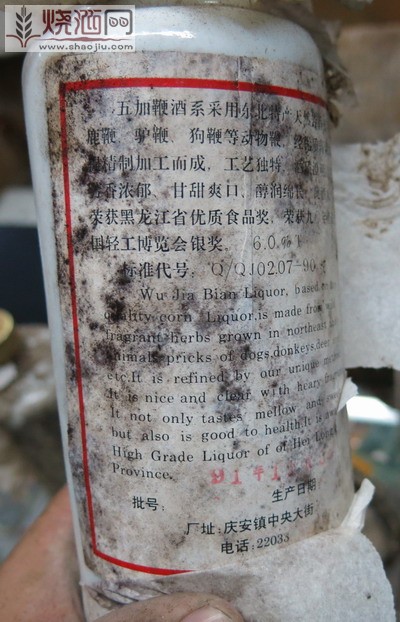 烧酒网
www.shaojiu.com
五加鞭酒系采用东北特产天然
鹿鞭 驴鞭 狗鞭等动物鞭,
精制加工而成,工艺独特,
香浓郁 甘甜爽口,醇润绵长,
荣获黑龙江省优质食品奖,荣获九
国轻工博览会银奖,
标准代号:Q/QJ0207-90
Wu Jia Bian Liquor, based on
quality corn Liquor, is made from
fragrant herbs grown in northeast
animals pricks of dogs, donkeys, deer
etc. It is refined by our unique
It is nice and clear with heary
It not only tastes mellow and
but also is good to health. It is
High Grade Liquor of of Hei Long
Province.
91年1
批号: 生产日期
厂址:庆安镇中央大街
电话:22035